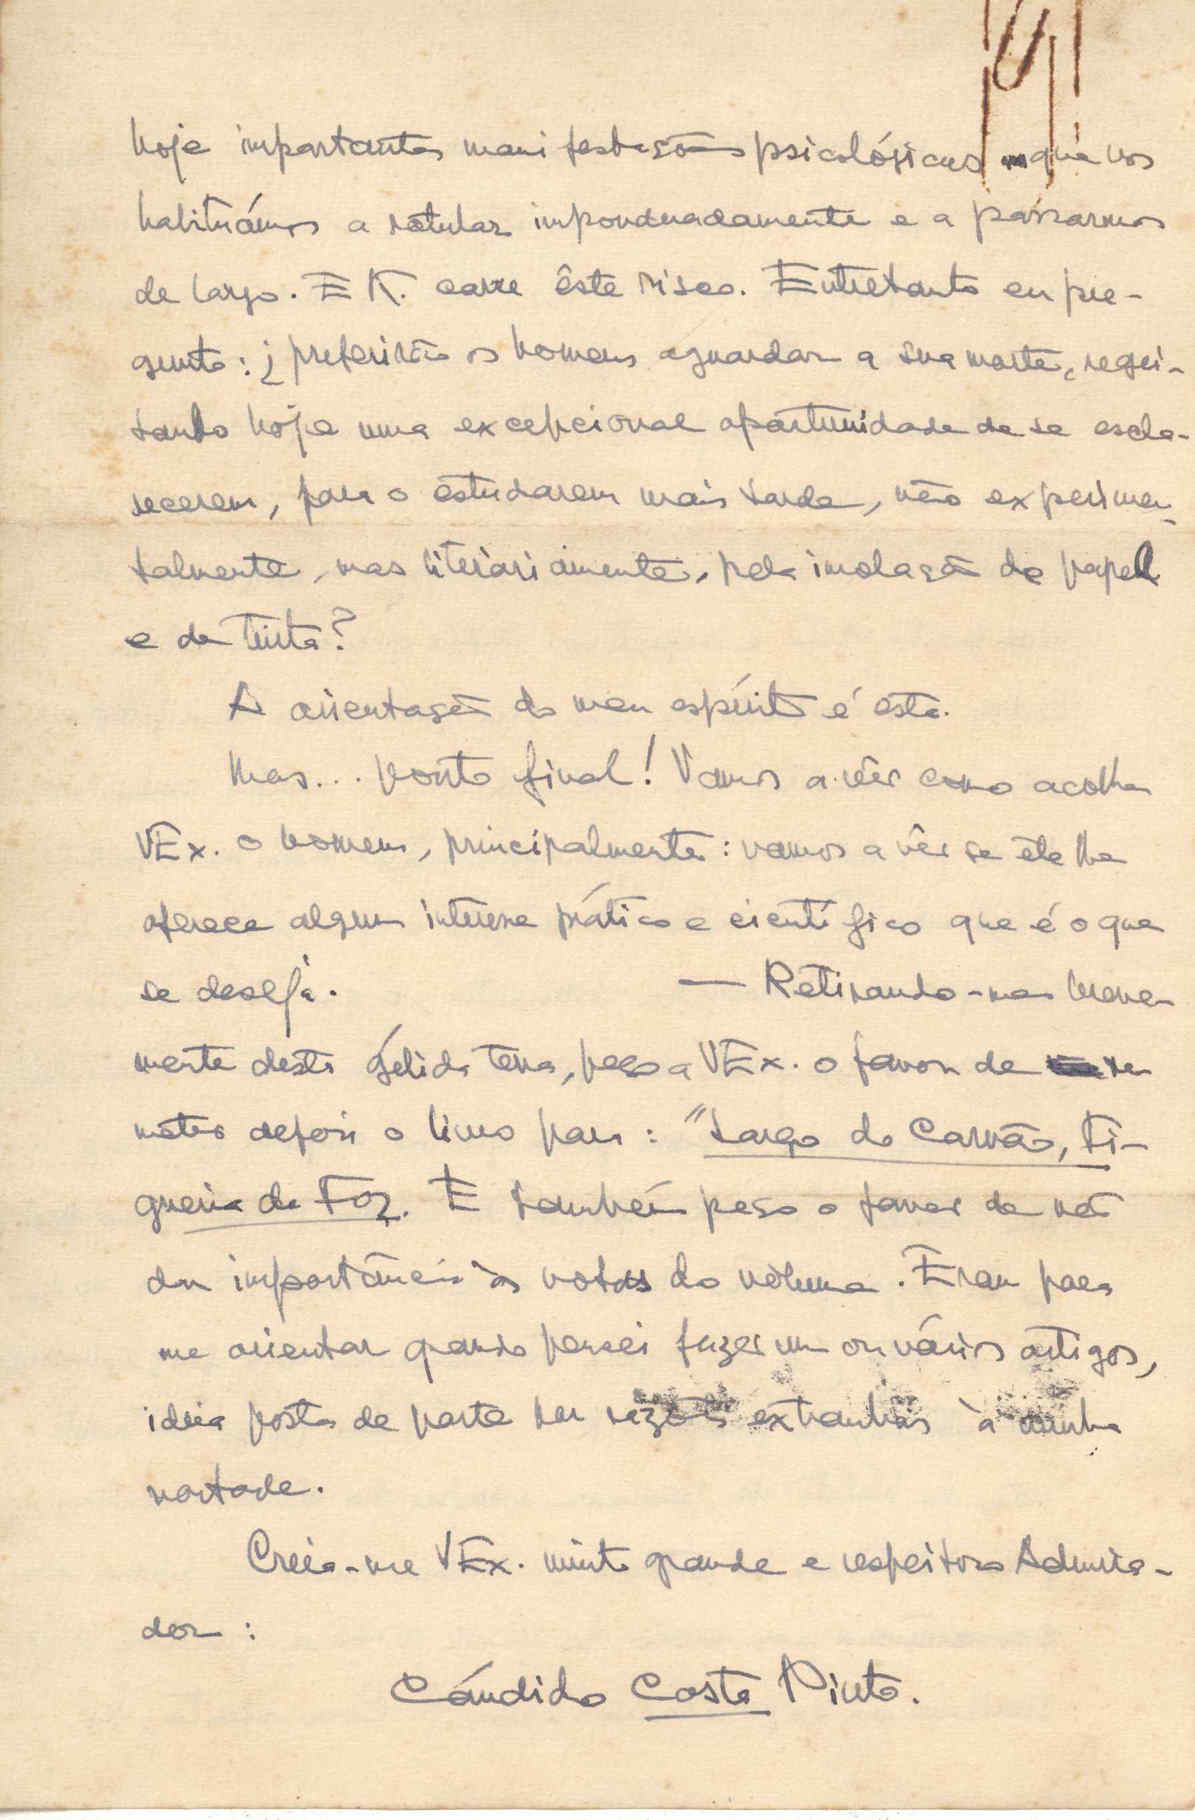 hoje importantes manifestações psicológicas que nos
habituámos a rotular imponderadamente e a passarmos
de largo. E K. corre êste risco. Entretanto eu pre-
gunto: ¿ preferirão os homens aguardar a sua morte, regei-
tando hoje uma excepcional oportunidade de se escla-
recerem, para o estudarem mais tarde, não experimen-
talmente, mas literáriamente, pela imolação de papel
e da tinta?
A orientação do meu espírito é esta.
Mas... ponto final! Vamos a vêr como acolhe
VEx. o homem, principalmente: vamos a vêr se êle lhe
oferece algum interesse prático e científico que é o que
se deseja. — Retirando-me breve-
mente desta gélida terra, peço a VEx. o favor de re
meter depois o livro para: "Largo do Carvão, Fi-
gueira da Foz. E também peço o favor de não
dar importância às notas do volume. Eram para
me orientar quando pensei fazer um ou vários artigos,
ideia posta de parte por razões extranhas à minha
vontade.
Creia-me VEx. muito grande e respeitoso Admira-
dor:
Cándido Costa Pinto.